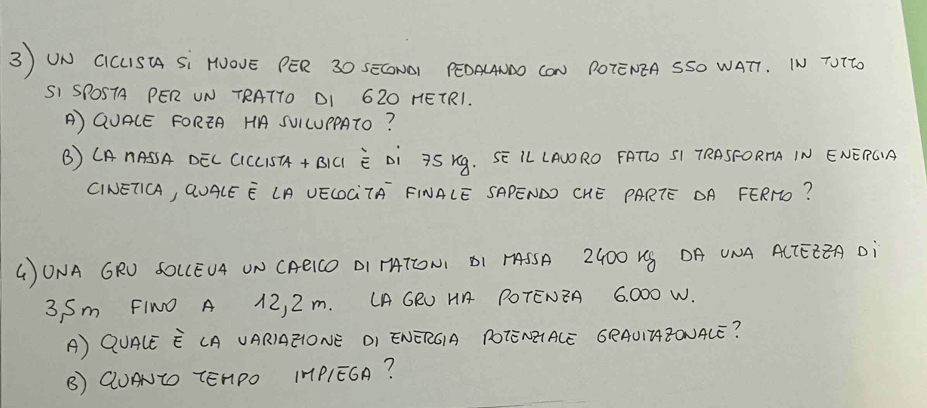 3) UN CICLISTA Si MUOVE PER 30 SECONDI PEDALANDO CON POTENZA 550 WATT. IN TUTTO
SI SPOSTA PER UN TRATTO DI 620 METRI.
A) QUALE FORZA HA SVILUPPATO?
B) LA MASSA DEL CICLISTA + BICI È Di 75 Kg. SE IL LAVORO FATTO SI TRASFORMA IN ENERGIA
CINETICA, QUALE È LA VELOCiTÀ FINALE SAPENDO CHE PARTE DA FERMO?
4) UNA GRU SOLLEVA UN CARICO DI MATTONI DI MASSA 2400 Kg DA UNA ALTEZZA Di
3,5m FINO A 12,2 m. LA GRU HA POTENZA 6.000 W.
A) QUALE È LA VARIAZIONE DI ENERGIA POTENZIALE GRAVITAZONALE?
B) QUANTO TEMPO IMPIEGA?